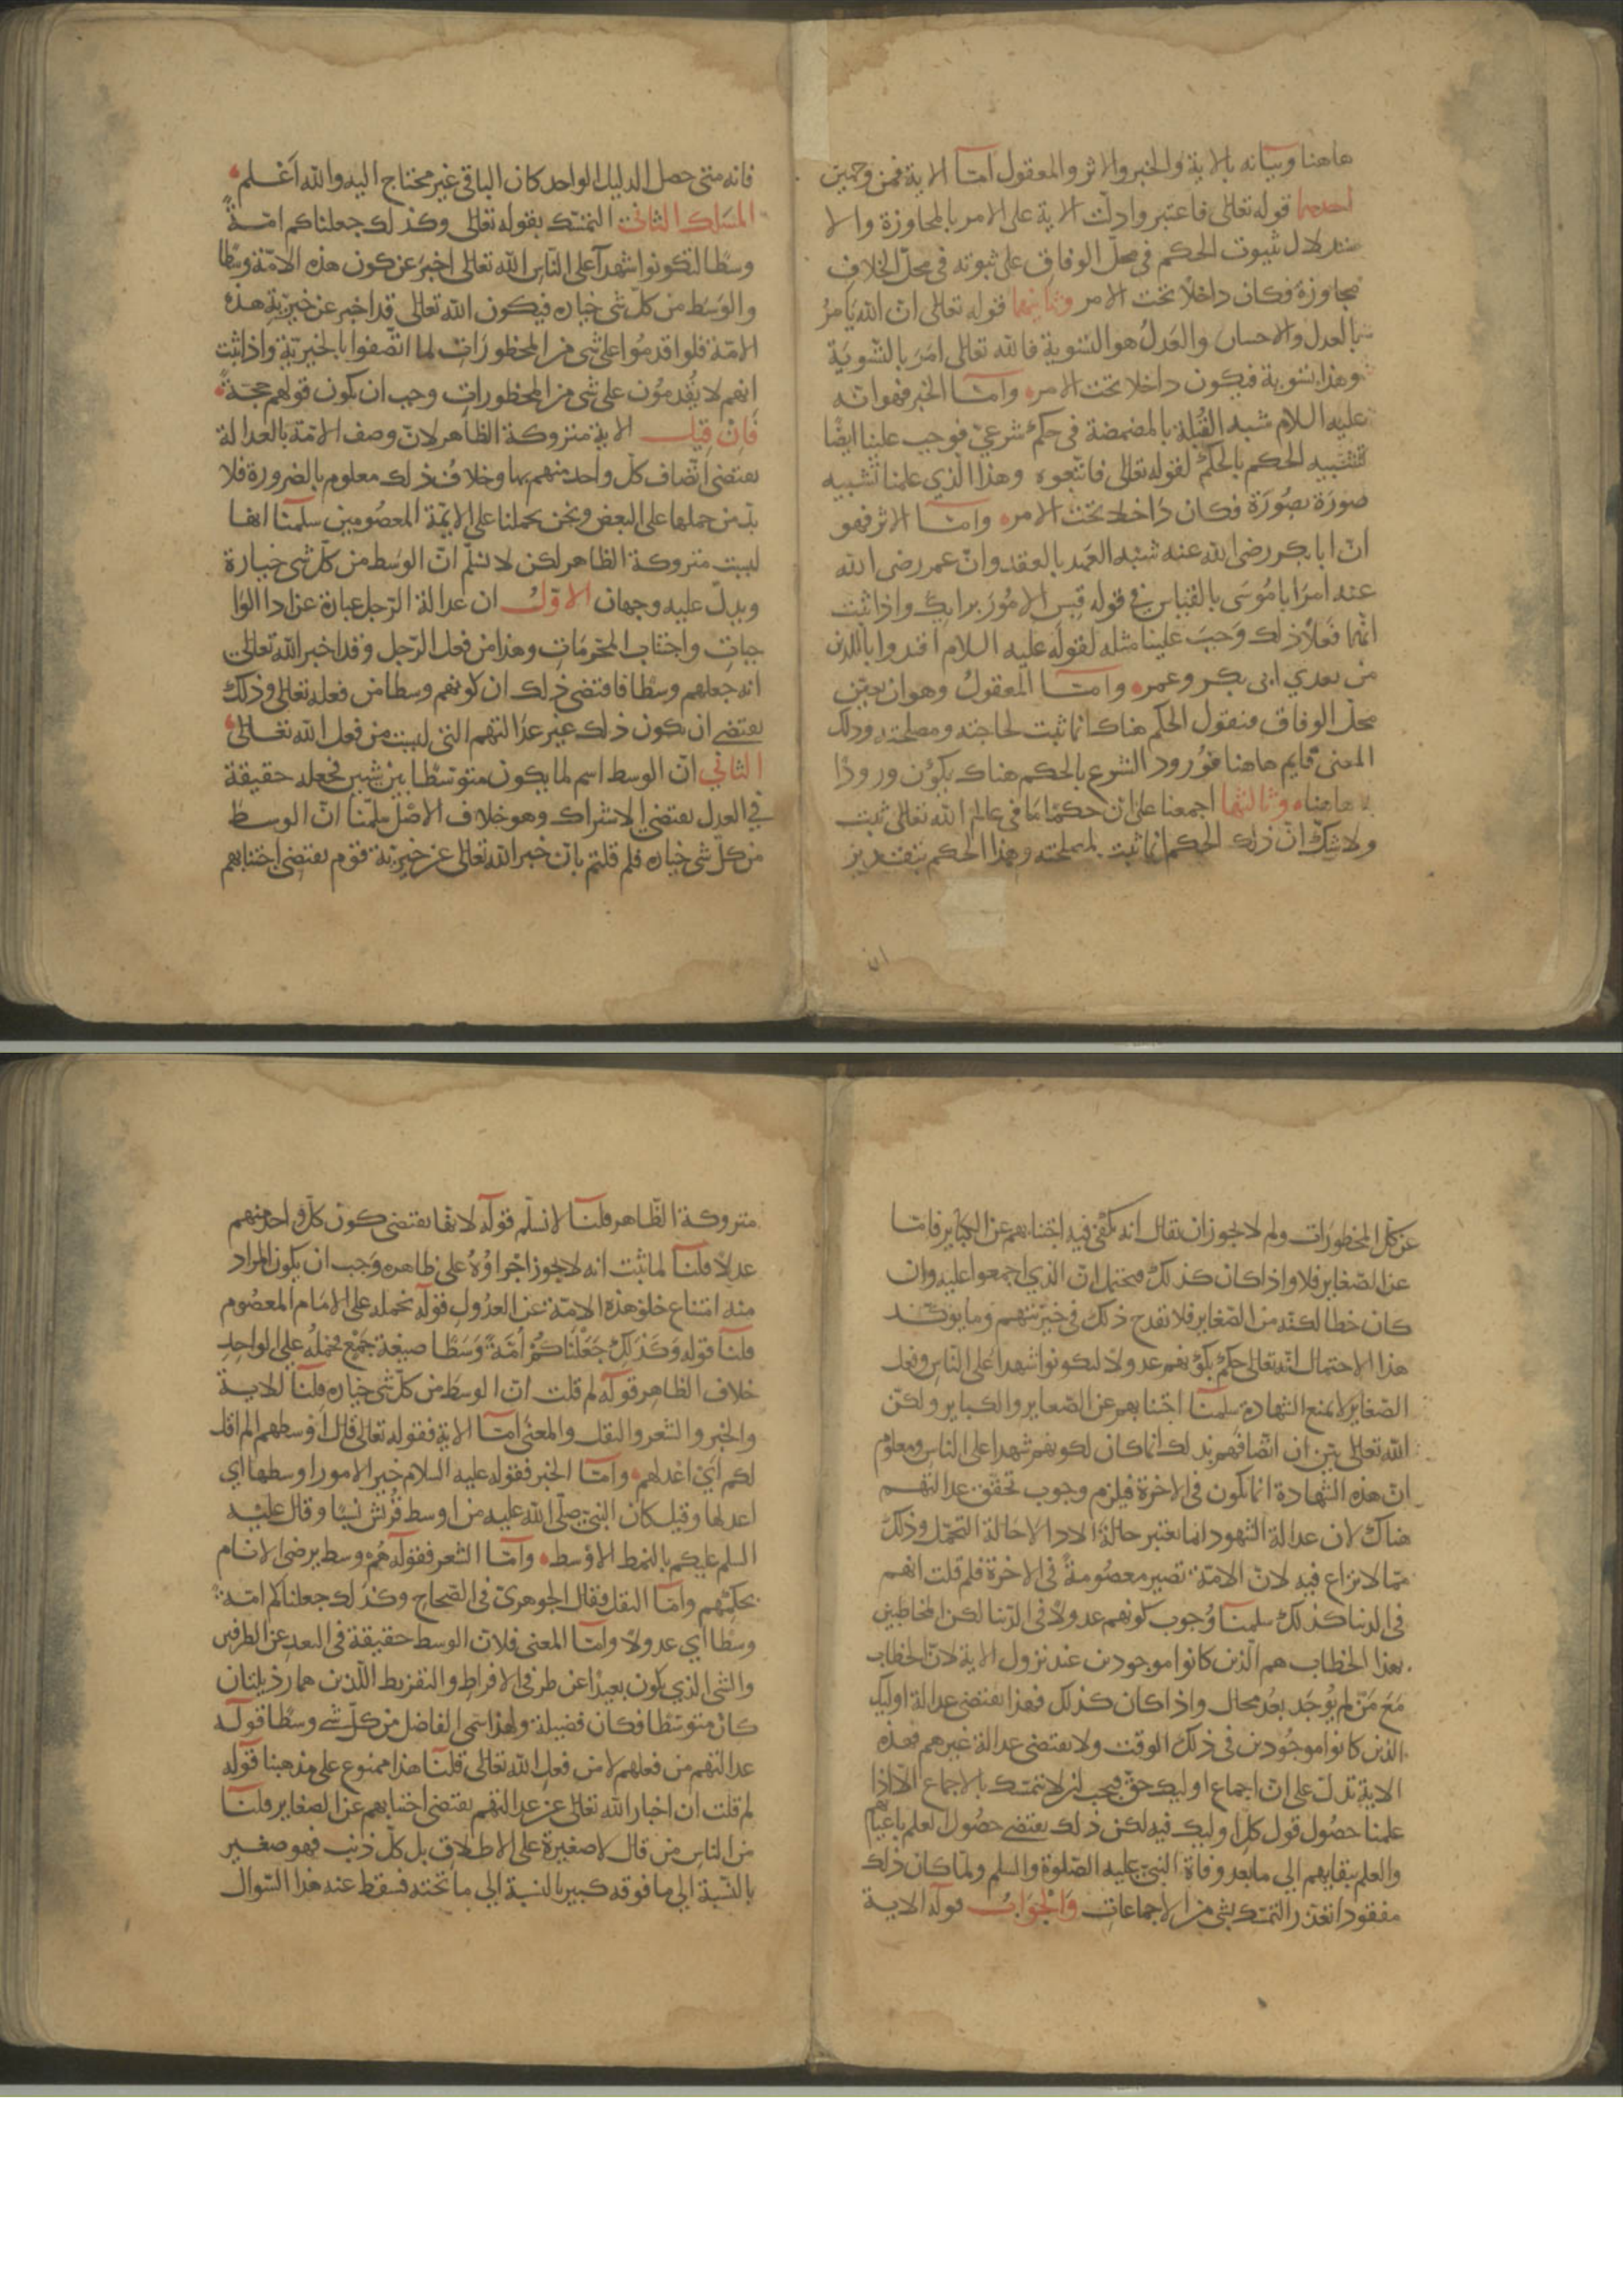 هاهنا وبيانه بالاية والخبر والاثر والمعقول امّا الاية فمن وجهين
احدهما قوله تعالى فاعتبروا دلّت الاية على الامر بالمجاوزة والا
ستدلال بثبوت الحكم فى محلّ الوفاق على ثبوته فى محلّ الخلاف
مجاوزة فكان داخلا تحت الامر وثانيهما قوله تعالى ان الله يامرُ
بالعدل والاحسان والعَدلُ هو التسوية فالله تعالى امَرَ بالتّسويَة
وهذا تسوية فيكون داخلا تحت الامر وامّا الخبر فهو انّه
عليه السلام شبه القُبلة بالمضمضة فى حكمٍ شرعيّ فوجب علينا ايضًا
تشبيه الحكم بالحكم لقوله تعالى فاتّبعوه وهذا الّذي علمنا تشبيه
صورَة بصُورَة فكان دَاخلا تحت الامر وامّا الاثر فهو
انّ ابا بكر رضى الله عنه شبّه العَهد بالعقد وانّ عمر رضى الله
عنه امرَ ابا مُوسَى بالقياس فى قوله قِسِ الامُورَ برايكَ واذا ثبت
انّهما فعلا ذلك وَجبَ علينا مثله لقوله عليه السلام اقتدوا باللذين
من بعدي ابى بكر وعمر وامّا المعقولُ وهو ان نعيّن
محلّ الوفاق فنقول الحكم هناك انما ثبت لحاجته ومصلحته وذلك
المعنى قايم هاهنا فوُرود الشرع بالحكم هناك يكوُن ورودًا
هاهنا وثالثها اجمعنا على انّ حكمًا مَا فى عالم الله تعالى ثبت
ولا شكّ انّ ذلك الحكم انما ثبت لمصلحته وهذا الحكم بتقدير
ان
فانه متى حصل الدليل الواحد كان الباقى غير محتاج اليه والله اَعْلم
المسَلك الثانى التمسّك بقوله تعالى وكذلك جعلناكم امّةً
وسطًا لتكونوا شهدآ على النّاسِ الله تعالى اخبَر عن كون هذه الامّة وسطًا
والوَسَط من كلّ شى خياره فيكون الله تعالى قد اخبر عن خيريّة هذه
الامّة فلو اقدمُوا على شى من المحظورَاتِ لما اتّصفوا بالخيريّةِ واذا ثبت
انهم لا يُقدِمُون على شى من المحظوراتِ وجب ان يكون قولهم حجّةً
فَاِنْ قِيل الاية متروكة الظّاهر لانّ وصف الامّة بالعدالة
يقتضى اتّصاف كلّ واحد منهم بها وخلافُ ذلك معلوم بالضرورة فلا
بدّ من حملها على البعض ونحن نحملنا على الايمّة المعصُومين سلّمنا انها
ليست متروكة الظاهر لكن لا نسلّم انّ الوسَط من كلّ شى خيارة
ويدلّ عليه وجهان الاوّلُ ان عدالة الرّجل عبارة عن ادا الوَا
جباتِ واجتناب المحرّمَاتِ وهذا من فعل الرّجل وقد اخبر الله تعالى
انه جعلهم وسطًا فاقتضى ذلك ان كونهم وسطا من فعله تعالى وذلك
يقتضى ان يكون ذلك غير عدَالتهم التى ليست من فعل الله تعَالى
الثانى انّ الوسط اسم لما يكون متوسّطًا بين شيين فجعله حقيقة
فى العدل يقتضى الاشتراك وهو خلاف الاصْل سلّمنا انّ الوسط
من كلّ شى خياره فلم قلتم بانّ خبر الله تعالى عن خيريّة قوم يقتضى اجتنابهم
عن كلّ المحظورَات ولم لا يجوز ان يقال انه يكفى فيه اجتنابهم عن الكبَايرِ فامّا
عن الصّغايرِ فلا واذا كان كذلك فيحتمل انّ الذي اجمعوا عليه وان
كان خطا لكنّه من الصّغاير فلا يقدح ذلك فى خيريّتهم وما يوكّد
هذا الاحتمال انّه تعالى حكم بكوْنهم عدولاً ليكونوا شهدا على النّاسِ وفعل
الصّغاير لا يمنع الشهادة سلّمنا اجتنابهم عن الصّغاير والكباير ولكنّ
الله تعالى بيّن ان اتّصافهم بذلك انما كان لكونهم شهدا على الناس ومعلوُم
انّ هذه الشهادة انما تكون فى الاخرة فيلزم وجوب تحقّق عدالتهم
هناك لان عدالة الشهود انما تعتبر حالة الادا لا حَالة التحمّل وذلك
ممّا لا نزاع فيه لانّ الامّة تصير معصُومةً فى الاخرة فلم قلت انهم
فى الدنيا كذلك سلّمنا وُجوب كونهم عدولاً فى الدّنيا لكن المخاطبين
بهذا الخطاب هم الّذين كانوا موجودين عند نزول الاية لانّ الخطاب
مَعَ مَنْ لم يُوجَد بعدُ محال واذا كان كذلك فهذا يقتضى عدالة اوليك
الّذين كانوا موجُودين فى ذلك الوقت ولا يقتضى عدالة غيرهم فهذه
الاية تدلّ على انّ اجماع اوليك حقّ فيجب ان لا نتمسّك بالاجماع الّا اذا
علمنا حصُول قول كلّ اوليك فيه لكن ذلك يقتضى حصُول العلم باعيانهم
والعلم ببقايهم الى ما بعد وفاة النبىّ عليه الصّلوة والسلم ولمّا كان ذلك
مفقودا تعذّر التمسّك بشى من الاجماعات وَالْجَوَابُ قوله الاية
متروكة الظّاهر قلنا لا نسلّم قوله لانها يقتضى كون كلّ واحدٍ منهم
عدلاً قلنا لما ثبت انه لا يجوز اجْراوُهُ على ظاهره وَجب ان يكون المراد
منه امتناع خلوّ هذه الامّة عن العدُول قوله نحمله على الامَام المعصُوم
قلنا قوله وَكَذَلِكَ جَعَلْنَاكُمْ اُمَّةً وَسَطًا صيغة جَمْعٍ فحَملُهُ على الواحِد
خلاف الظاهرِ قوله لم قلت انّ الوسَط من كلّ شى خياره قلنا للاية
والخبر والشعر والنقل والمعنى امّا الاية فقوله تعالى قال اَوْسطهم الم اقل
لكم اَىْ اعْدلهم وامّا الخبر فقوله عليه السلام خير الامور اوسطها اي
اعدلها وقيل كان النبىّ صلّى الله عليه من اوسط قُرَيْش نَسَبًا وقال عليْه
السلم عليكم بالنمط الاوْسط وامّا الشعر فقوله هُمْ وسط يرضى الانام
بحكمِهم وامّا النقل فقال الجوهرىّ فى الصّحاح وكذلك جعلناكم امّةً
وسَطًا اي عدولاً وامّا المعنى فلانّ الوسط حقيقة فى البعد عن الطرفين
والشى الذي يكون بعيدًا عن طرفى الافراطِ والتفريط اللّذين هما رذيلتان
كان متوسّطا فكان فضيلة ولهذا سُمّى الفاضل من كلّ شى وسطًا قوله
عدالتهم من فعلهم لا من فعل الله تعالى قلنا هذا ممنوع على مذهبنا قوله
لم قلت ان اخبار الله تعالى عن عدالتهم يقتضى اجتنابهم عن الصغاير قلنا
من الناس من قال لا صغيرة على الاطلاقِ بل كلّ ذنب فهو صغير
بالنّسبة الى ما فوقه كبير بالنسبة الى ما تحته فسقط عنه هذا السّوال